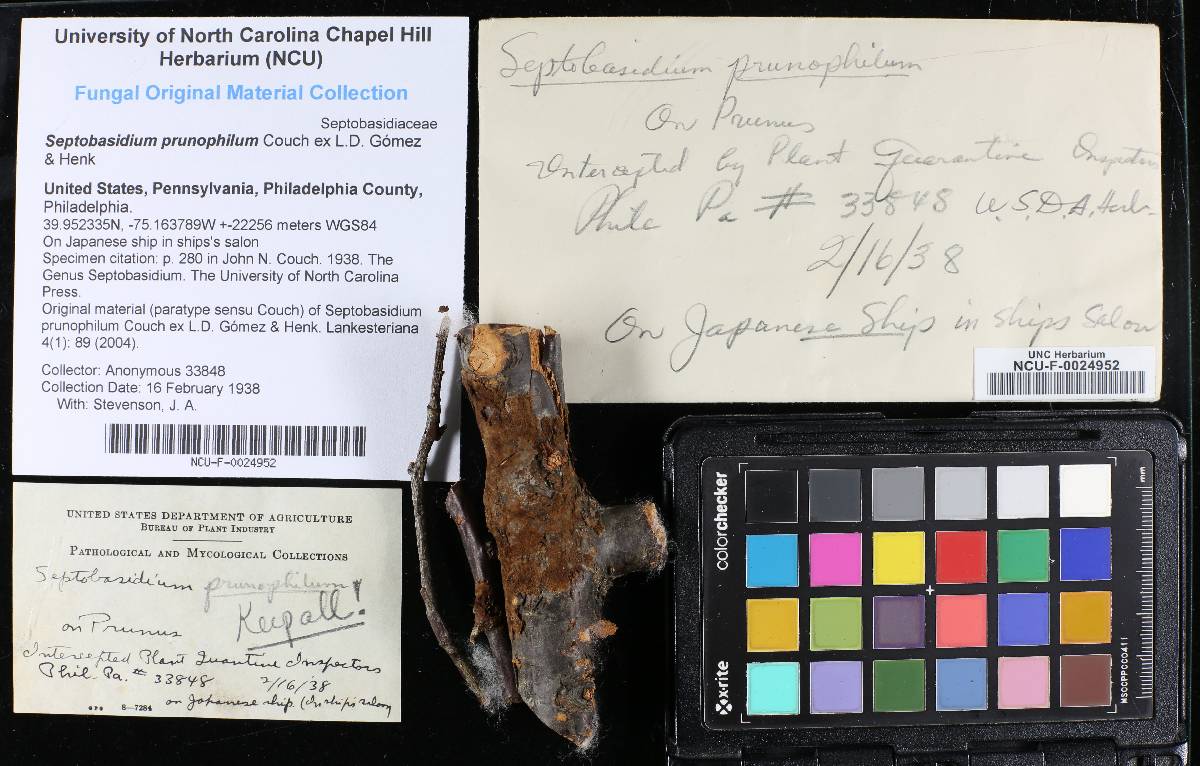 University of North Carolina Chapel Hill
Herbarium (NCU)
Fungal Original Material Collection
Septobasidiaceae
Septobasidium prunophilum Couch ex L.D. Gómez
& Henk
United States, Pennsylvania, Philadelphia County,
Philadelphia.
39.952335N, -75.163789W +-22256 meters WGS84
On Japanese ship in ships's salon
Specimen citation: p. 280 in John N. Couch. 1938. The
Genus Septobasidium. The University of North Carolina
Press.
Original material (paratype sensu Couch) of Septobasidium
prunophilum Couch ex L.D. Gómez & Henk. Lankesteriana
4(1): 89 (2004).
Collector: Anonymous 33848
Collection Date: 16 February 1938
With: Stevenson, J. A.
NCU-F-0024952
Septobasidium prunophilum
On Prunus
Intercepted by Plant Quarantine Inspectors
Phila Pa # 33848 U.S.D.A. Herb.
2/16/38
On Japanese Ship in Ships Salon
UNC Herbarium
NCU-F-0024952
UNITED STATES DEPARTMENT OF AGRICULTURE
BUREAU OF PLANT INDUSTRY
PATHOLOGICAL AND MYCOLOGICAL COLLECTIONS
Septobasidium prunophilum
Keep all!
on Prunus
Intercepted Plant Quantine Inspectors
Phil. Pa. # 33848 2/16/38
on Japanese ship (in ships salon
GPO 8-7284
colorchecker
x-rite
mm
MSCCPPCC0411